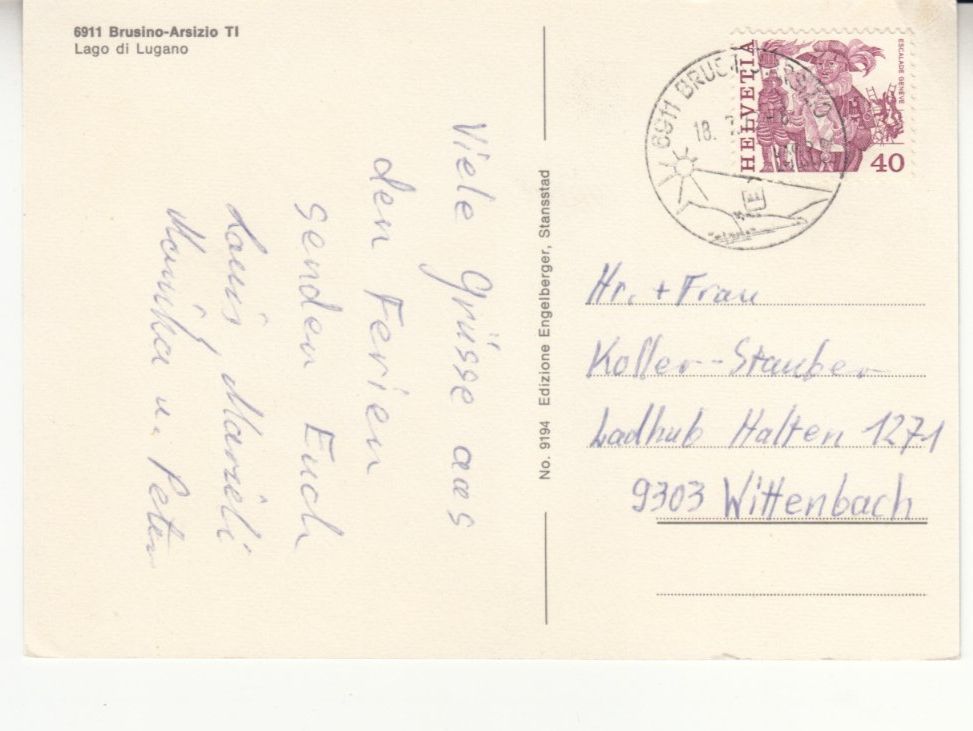 6911 Brusino-Arsizio TI
Lago di Lugano
Viele Grüsse aus
den Ferien
senden Euch
Louis, Marieli
Monika u. Peter
No. 9194 Edizione Engelberger, Stansstad
HELVETIA
ESCALADE GENÈVE
40
6911 BRUSINO ARSIZIO
18.
Hr. + Frau
Koller-Stauber
Ladhub Halten 1271
9303 Wittenbach